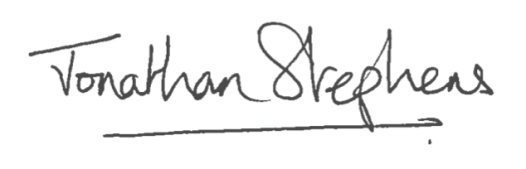 Jonathan Stephens